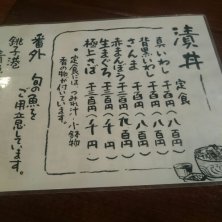 漬丼
定食
真いわし 千百円（八百円）
背黒いわし 千百円（八百円）
さんま 千百円（八百円）
赤まんぼう 千二百円（九百円）
生まぐろ 千三百円（千円）
極上さば 千三百円（千円）
・定食には、つみれ汁・小鉢物
香の物が付いています。
番外 旬の魚を
ご用意しています。
銚子港